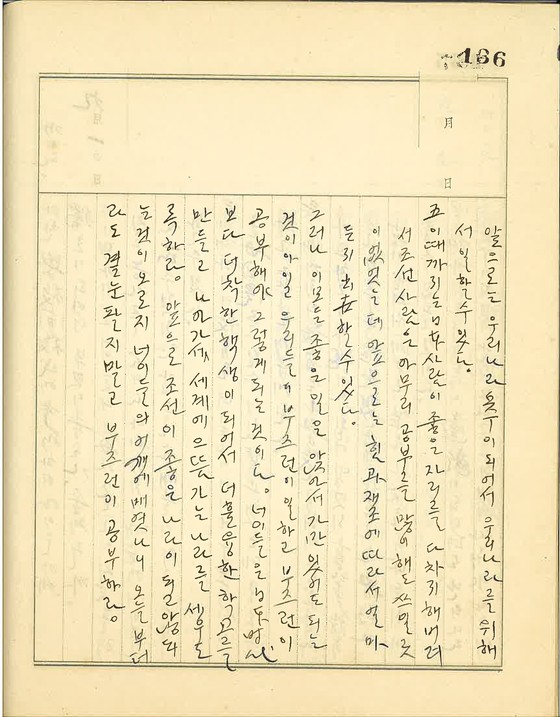 186
月
日
앞으로는 우리나라 食구이 되어서 우리나라를 위해
서 일할수 있는.
五 이때까지는 日本사람이 좋은 자리를 다 차지해버려
서 조선사람은 아무리 공부를 많이 해도 쓰일 곳
이 없었는데 앞으로는 힘과 재조에 따라서 얼마
든지 出世할수 있다.
그러나 이 모든 좋은 일을 앉아서 가만있어도 되는
것이 아이고 우리들이 부즈런이 일하고 부즈런이
공부해야 그렇게 되는 것이다. 너이들은 日本
보다 더 착한 핵생이 되어서 더 훌융한 학교를
만들고 나아가서 세계에 으뜸가는 나라를 세우도
록 하라. 앞으로 조선이 좋은 나라이 되고 않되
는 것이 오로지 너이들의 어깨에 매엿나니 오늘부터
라도 곁눈 팔지말고 부즈런이 공부하라.